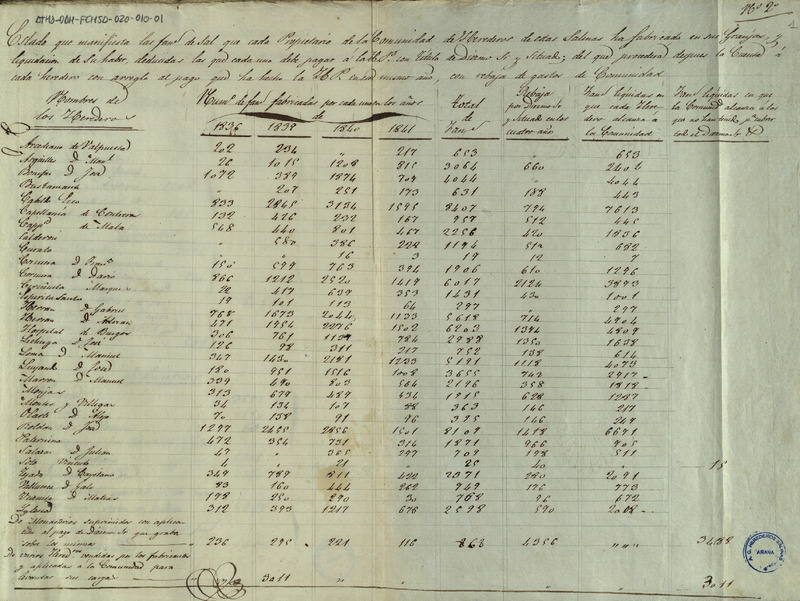 ATHA-DAH-FCHSD-020-010-01
Nº 2º
Estado que manifiesta las fan.s de Sal que cada Propietario de la Comunidad de Herederos de estas Salinas ha fabricado en sus Granjas, y
liquidacion de su haber deducidas las que cada uno debe pagar á la H.P. con titulo de Diezmo &c y Situado; del que procederá despues la Cuenta á
cada heredero con arreglo al pago que ha hecho la H.P. en el mismo año, con rebaja de gastos de Comunidad
Nombres de los Herederos
Num.º de fan.s fabricadas por cada uno en los años de
1836 1839 1840 1841
Total de Fan.s
Rebaja por Diezmo &c y Situado en los cuatro años
Fan.s liquidas en que cada Heredero alcanza a la Comunidad
Fan.s liquidas en que la Comunid.d alcanza a los que no han tenido p.a cubrir el Diezmo &c
Arcadiano de Valpuesta 202 234 " 217 653 " 653
Arguelles D. Man.l 26 1015 1208 815 3064 660 2404
Bonifaz D. José 1072 389 1874 709 4044 " 4044
Bustamante " 207 251 173 631 188 443
Cabildo Eco 833 2845 3134 1595 8407 794 7613
Capellania de Contrera 132 426 232 167 957 512 445
Capp.a de Mata 548 440 801 467 2256 420 1836
Calderon " 580 386 228 1194 512 682
Curato " " 16 3 19 12 7
Corcuera D. 150 599 763 394 1906 610 1296
Corcuera D. Dario 866 1212 2520 1419 6017 2124 3893
Marques 22 417 639 353 1431 430 1001
Espiritu Santo 19 101 113 64 297 " 297
Herran D. Gabriel 768 1673 2044 1133 5618 714 4904
Herran D. 471 1954 2276 1502 6203 1394 4809
Hospital de Burgos 306 761 1137 784 2988 1350 1638
Lechuga D. José 126 98 311 217 752 138 614
Loma D. Manuel 347 1430 2181 1233 5191 1118 4073
Luyando D. José 180 951 1516 1008 3655 742 2917
Marron D. Manuel 339 490 803 564 2196 358 1818
Monjas 313 679 489 434 1915 628 1287
Montes y Villegas 34 134 107 88 363 146 217
Olarte D. 70 138 91 96 395 146 249
Roldan D. José 1297 2455 2856 1501 8109 1418 6691
Paternina 472 354 731 314 1871 966 905
Salazar D. Julian 47 " 365 297 709 198 511
Soto Vicente 4 " 21 " 25 40 " 15
Tejada D. Cayetano 349 789 811 422 2371 280 2091
Vallunca D. Galo 83 160 444 262 949 176 773
Vicario D. Matias 198 250 290 30 768 96 672
Iglesia 312 393 1217 676 2598 590 2008
De Monasterios suprimidos con aplica-
cion al pago de Diezmo &c que graba
sobre los mismos 236 295 221 116 868 4356 " 3488
De varios Hered.s vendidas por los fabricantes
y aplicadas á la Comunidad para
levantar sus cargas 3011 " " " " 3011
A.G. HEREDEROS SALINAS
AÑANA